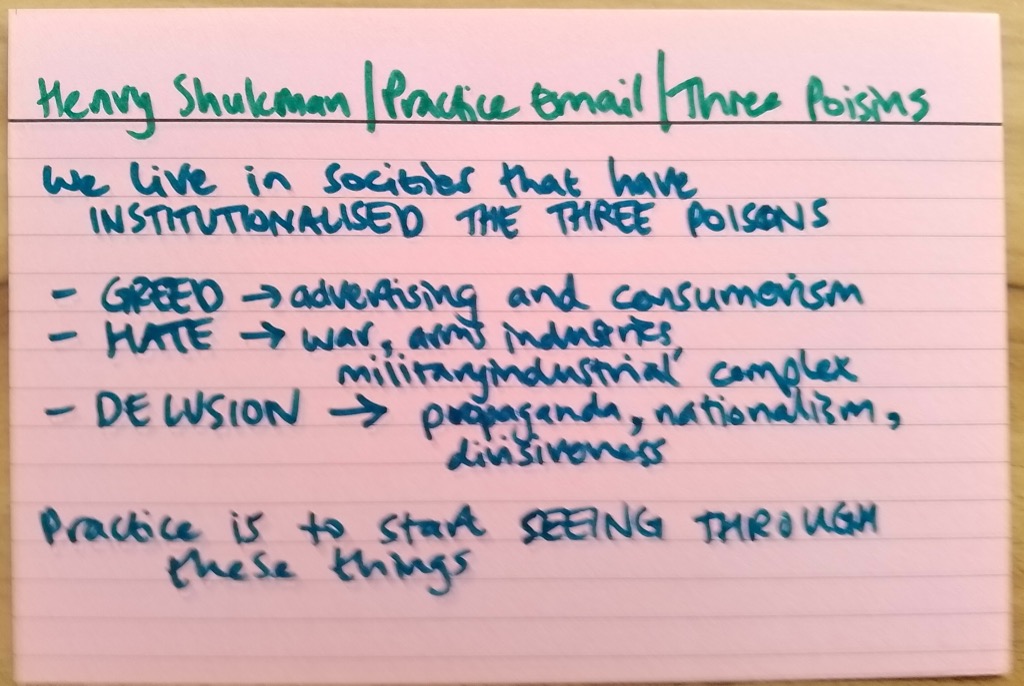 Henry Shukman / Practice Email / Three Poisins
We live in socities that have
INSTITUTIONALISED THE THREE POISONS
- GREED → advertising and consumerism
- HATE → war, arms industries,
militaryindustrial complex
- DELUSION → propaganda, nationalism,
divisiveness
Practice is to start SEEING THROUGH
these things